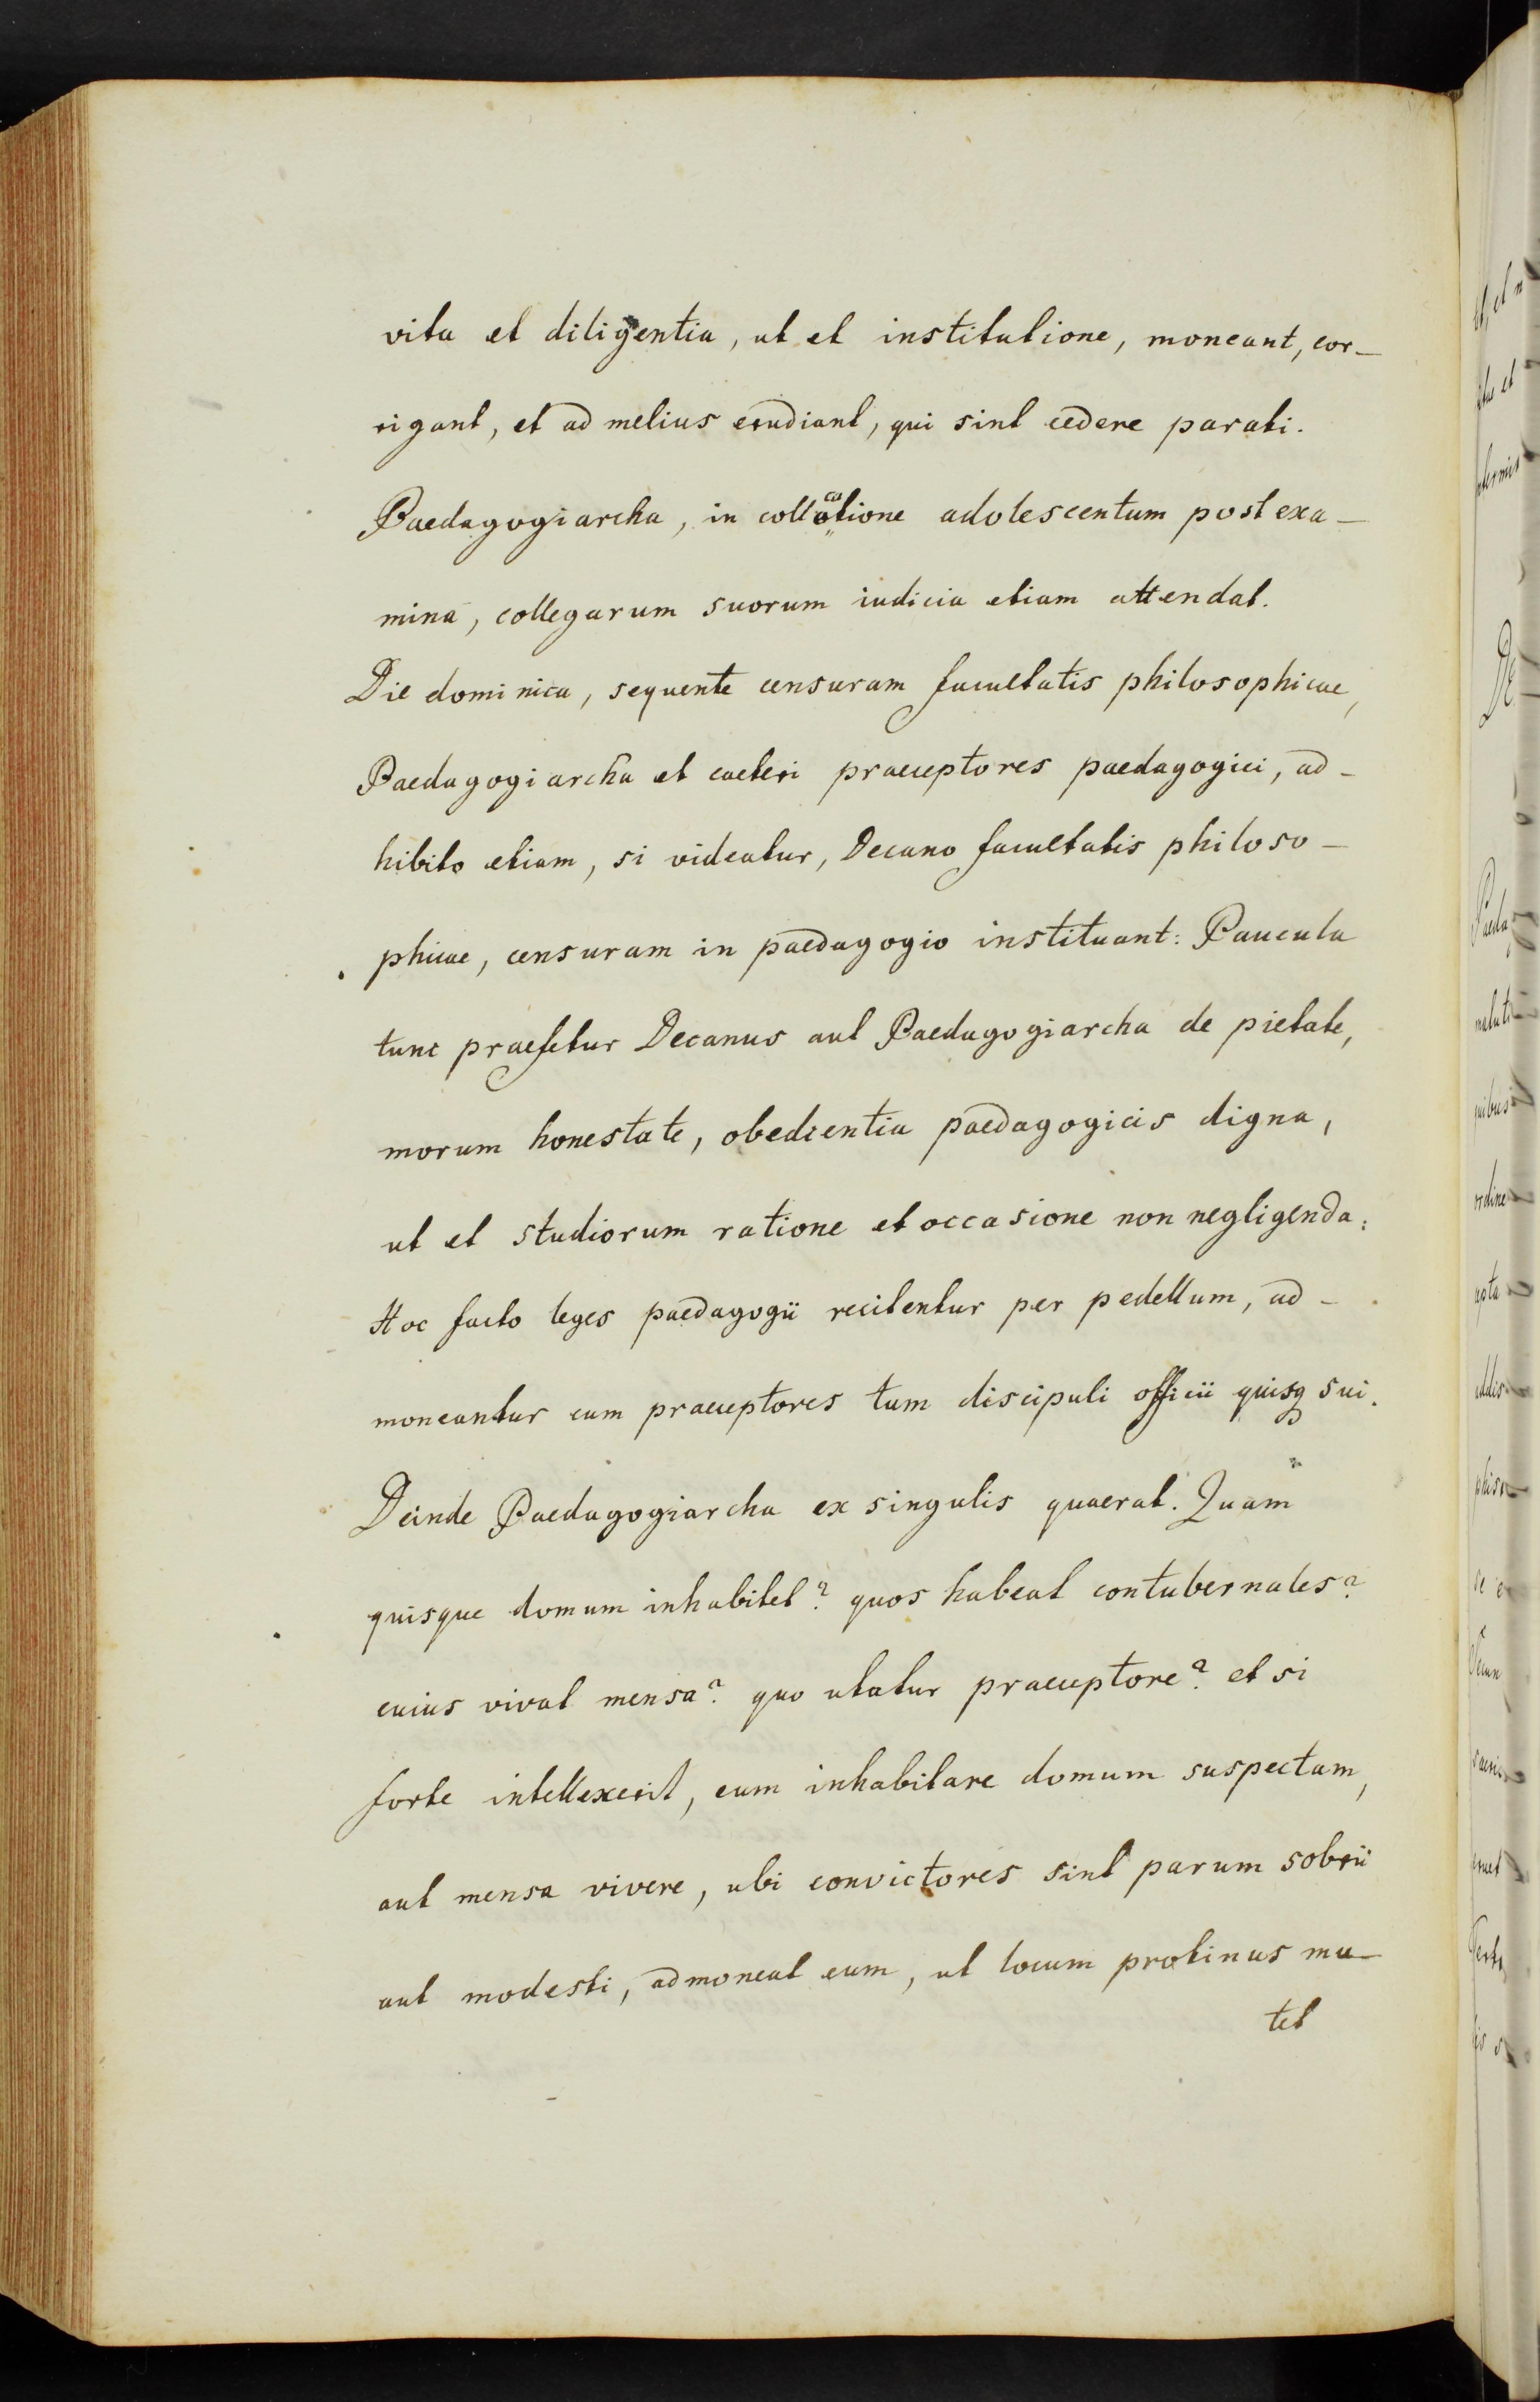 vita et diligentia, ut et institutione, moneant, cor-
rigant, et ad melius erudiant, qui sint cedere parati.
Paedagogiarcha, in collocatione adolescentum post exa-
mina, collegarum suorum iudicia etiam attendat.
Die dominica, sequente censuram facultatis philosophicae,
Paedagogiarcha et caeteri praeceptores paedagogici, ad-
hibito etiam, si videatur, Decano facultatis philoso-
phicae, censuram in paedagogio instituant: Paucula
tunc praefetur Decanus aut Paedagogiarcha de pietate,
morum honestate, obedientia paedagogicis digna,
ut et studiorum ratione et occasione non negligenda:
Hoc facto leges paedagogii recitentur per pedellum, ad-
moneantur cum praeceptores tum discipuli officii quisq sui.
Deinde Paedagogiarcha ex singulis quaerat. Quam
quisque domum inhabitet? quos habeat contubernales?
cuius vivat mensa? quo utatur praeceptore? et si
forte intellexerit, eum inhabitare domum suspectam,
aut mensa vivere, ubi convictores sint parum sobrii
aut modesti, admoneat eum, ut locum protinus mu-
tet